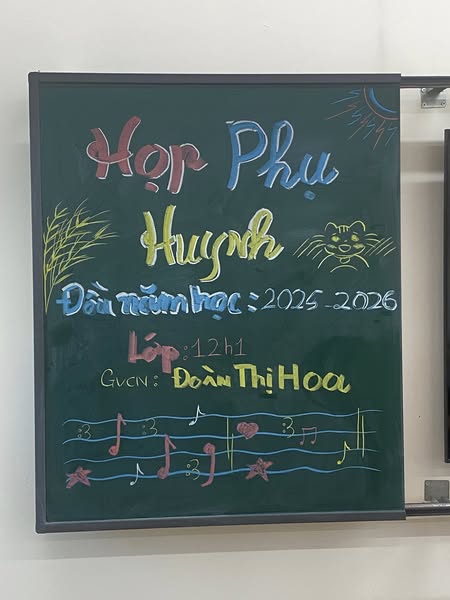 Họp Phụ
Huynh
Đầu năm học : 2025-2026
Lớp : 12h1
GVCN : Đoàn Thị Hoa